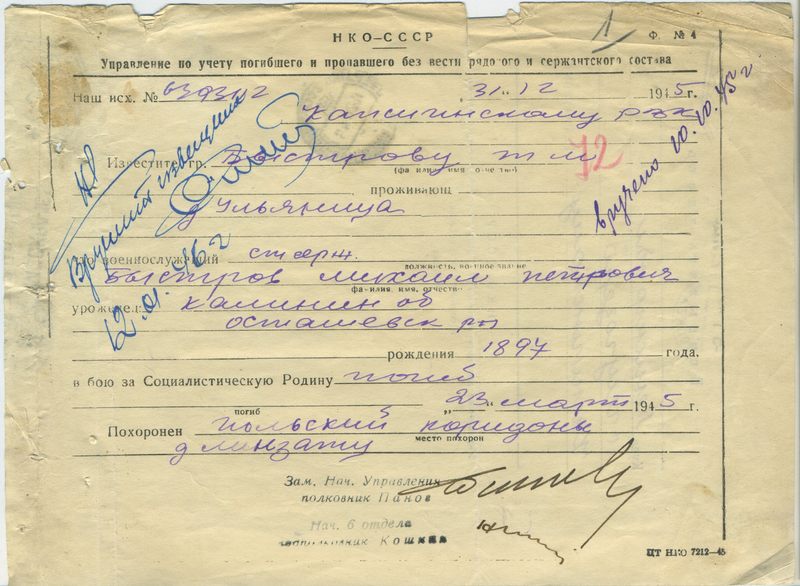 НКО—СССР
Ф. № 4
Управление по учету погибшего и пропавшего без вести рядового и сержантского состава
Наш исх. № 31 "12 1945 г.
рвк
Известите гр. Быстрову
72
(фамилия, имя, отчество)
проживающ
д Ульяница
что военнослужащий ст серж.
должность, военное звание
Быстров Михаил Петрович
фамилия, имя, отчество
уроженец: Калинин об
Осташевск рн
рождения 1897 года.
в бою за Социалистическую Родину погиб
„23" март 1945 г.
погиб
Похоронен Польский коридоны
место похорон
Зам. Нач. Управления
полковник Панов
Нач. 6 отдела
Кошкин
ЦТ НКО 7212—45
вручено 10.10.45 г
12.01.46 г